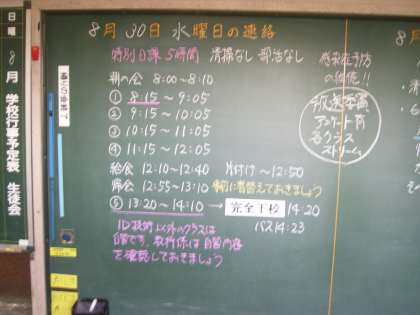 8月30日 水曜日の連絡
特別日課 5時間 清掃なし 部活なし
朝の会 8:00〜8:10
① 8:15〜9:05
② 9:15〜10:05
③ 10:15〜11:05
④ 11:15〜12:05
給食 12:10〜12:40 片付け〜12:50
帰会 12:55〜13:10 帰りに着替えておきましょう
⑤ 13:20〜14:10 → 完全下校 14:20
バス14:23
1D技術 以外のクラスは
自習です。教科係は自習内容
を確認しておきましょう
感染症予防
の徹底!!
放送委員
アンケート有
各クラス
ストリーム
日 曜
8月 学校行事予定表 生徒会